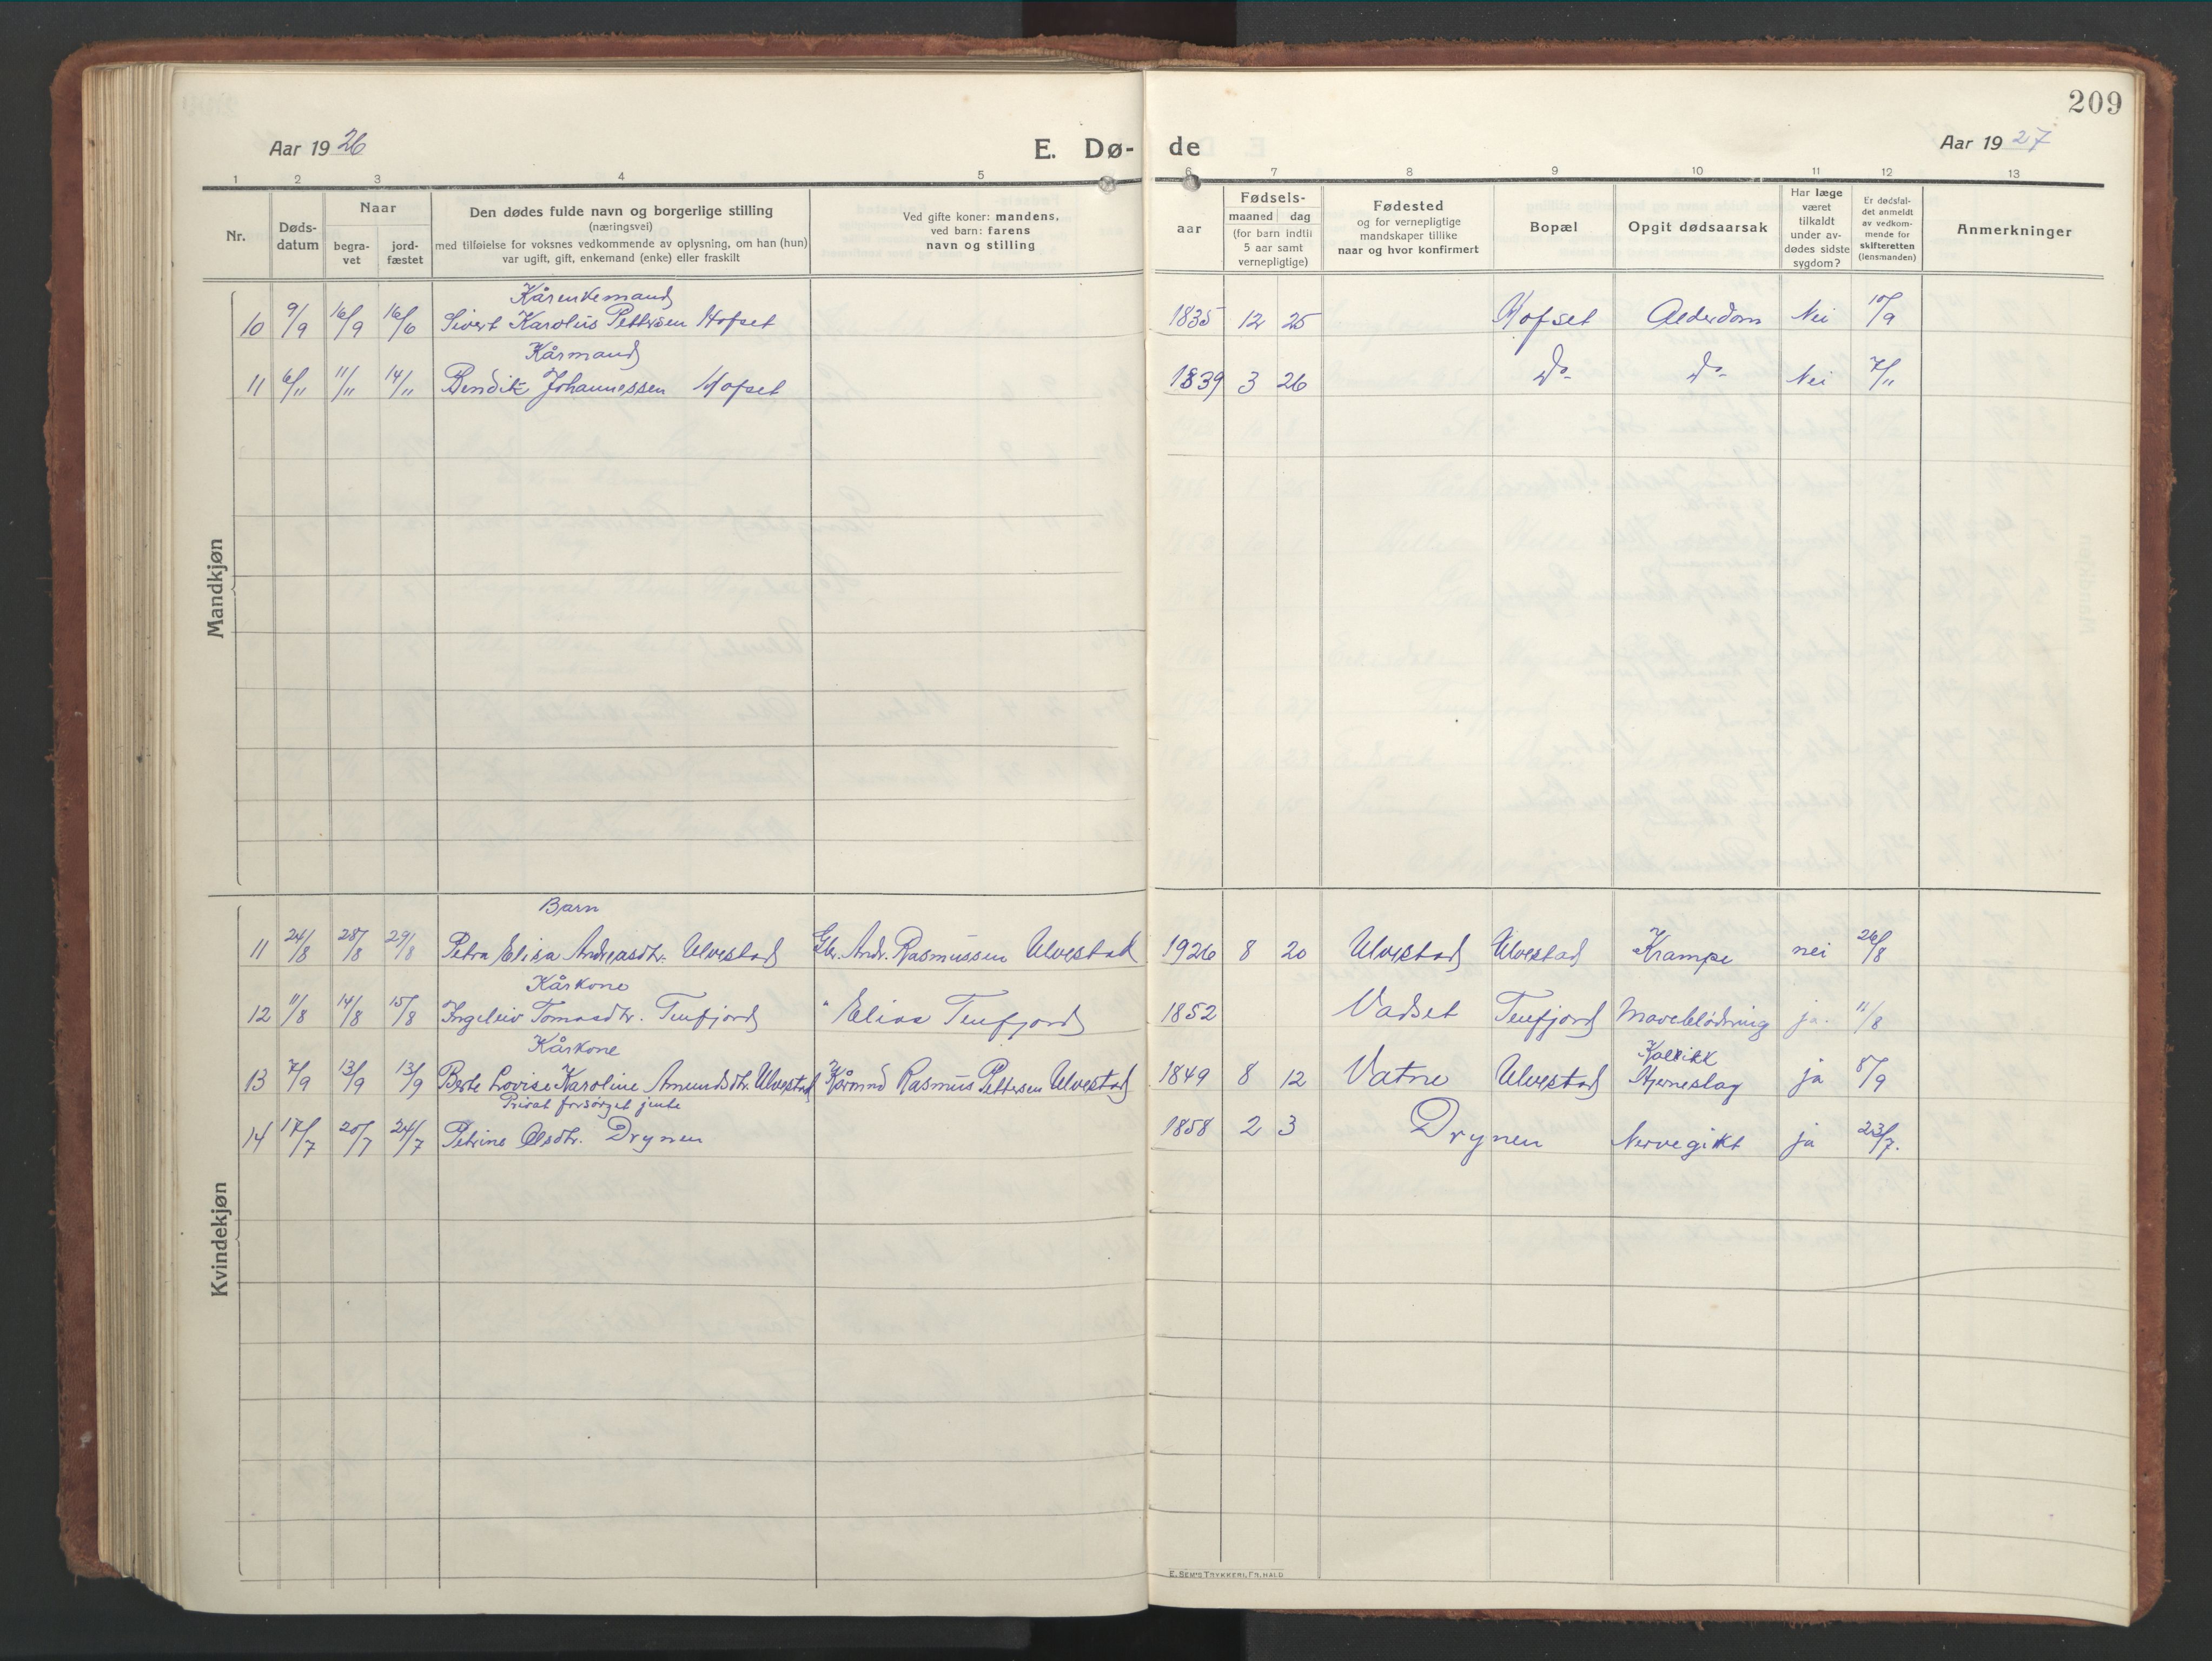 209
Aar 1926 E. Dø- de Aar 1927
1 2 3 4 5 6 7 8 9 10 11 12 13
Nr.
Døds-
datum
Naar
begra-
vet
jord-
fæstet
Den dødes fulde navn og borgerlige stilling
(næringsvei)
med tilføielse for voksnes vedkommende av oplysning, om han (hun)
var ugift, gift, enkemand (enke) eller fraskilt
Ved gifte koner: mandens,
ved barn: farens
navn og stilling
Fødsels-
aar
maaned dag
(for barn indtil
5 aar samt
vernepligtige)
Fødested
og for vernepligtige
mandskaper tillike
naar og hvor konfirmert
Bopæl
Opgit dødsaarsak
Har læge
været
tilkaldt
under av-
dødes sidste
sygdom?
Er dødsfal-
det anmeldt
av vedkom-
mende for
skifteretten
(lensmanden)
Anmerkninger
Mandkjøn
Kårenkemand
10 9/9 16/9 Sivert Karolus Pettersen Hofset 1835 12 25 Hofset Alderdom Nei 10/9
Kårmand
11 6/11 11/11 14/11 Bendik Johannessen Hofset 1839 3 26 Do Do Nei 7/11
Kvindekjøn
Barn
11 24/8 28/8 29/8 Petra Elisa Andreasdtr. Ulvestad Gbr. Andr. Rasmussen Ulvestad 1926 8 20 Ulvestad Ulvestad Krampe nei 26/8
Kårkone
12 11/8 14/8 15/8 Ingeleiv Tomasdtr. Tenfjord " Elias Tenfjord 1852 Vadset Tenfjord Maveblødning ja. 11/8
Kårkone
13 7/9 13/9 13/9 Berte Lovise Karoline Amundsdtr. Ulvestad Kårmnd Rasmus Pettersen Ulvestad 1849 8 12 Vatne Ulvestad Hjerneslag ja 8/9
Privat forsørget jente
14 17/7 20/7 24/7 Petrine Olsdtr. Drynen 1858 2 3 Drynen Nervegikt ja 23/7.
E. SEM'S TRYKKERI, FR.HALD